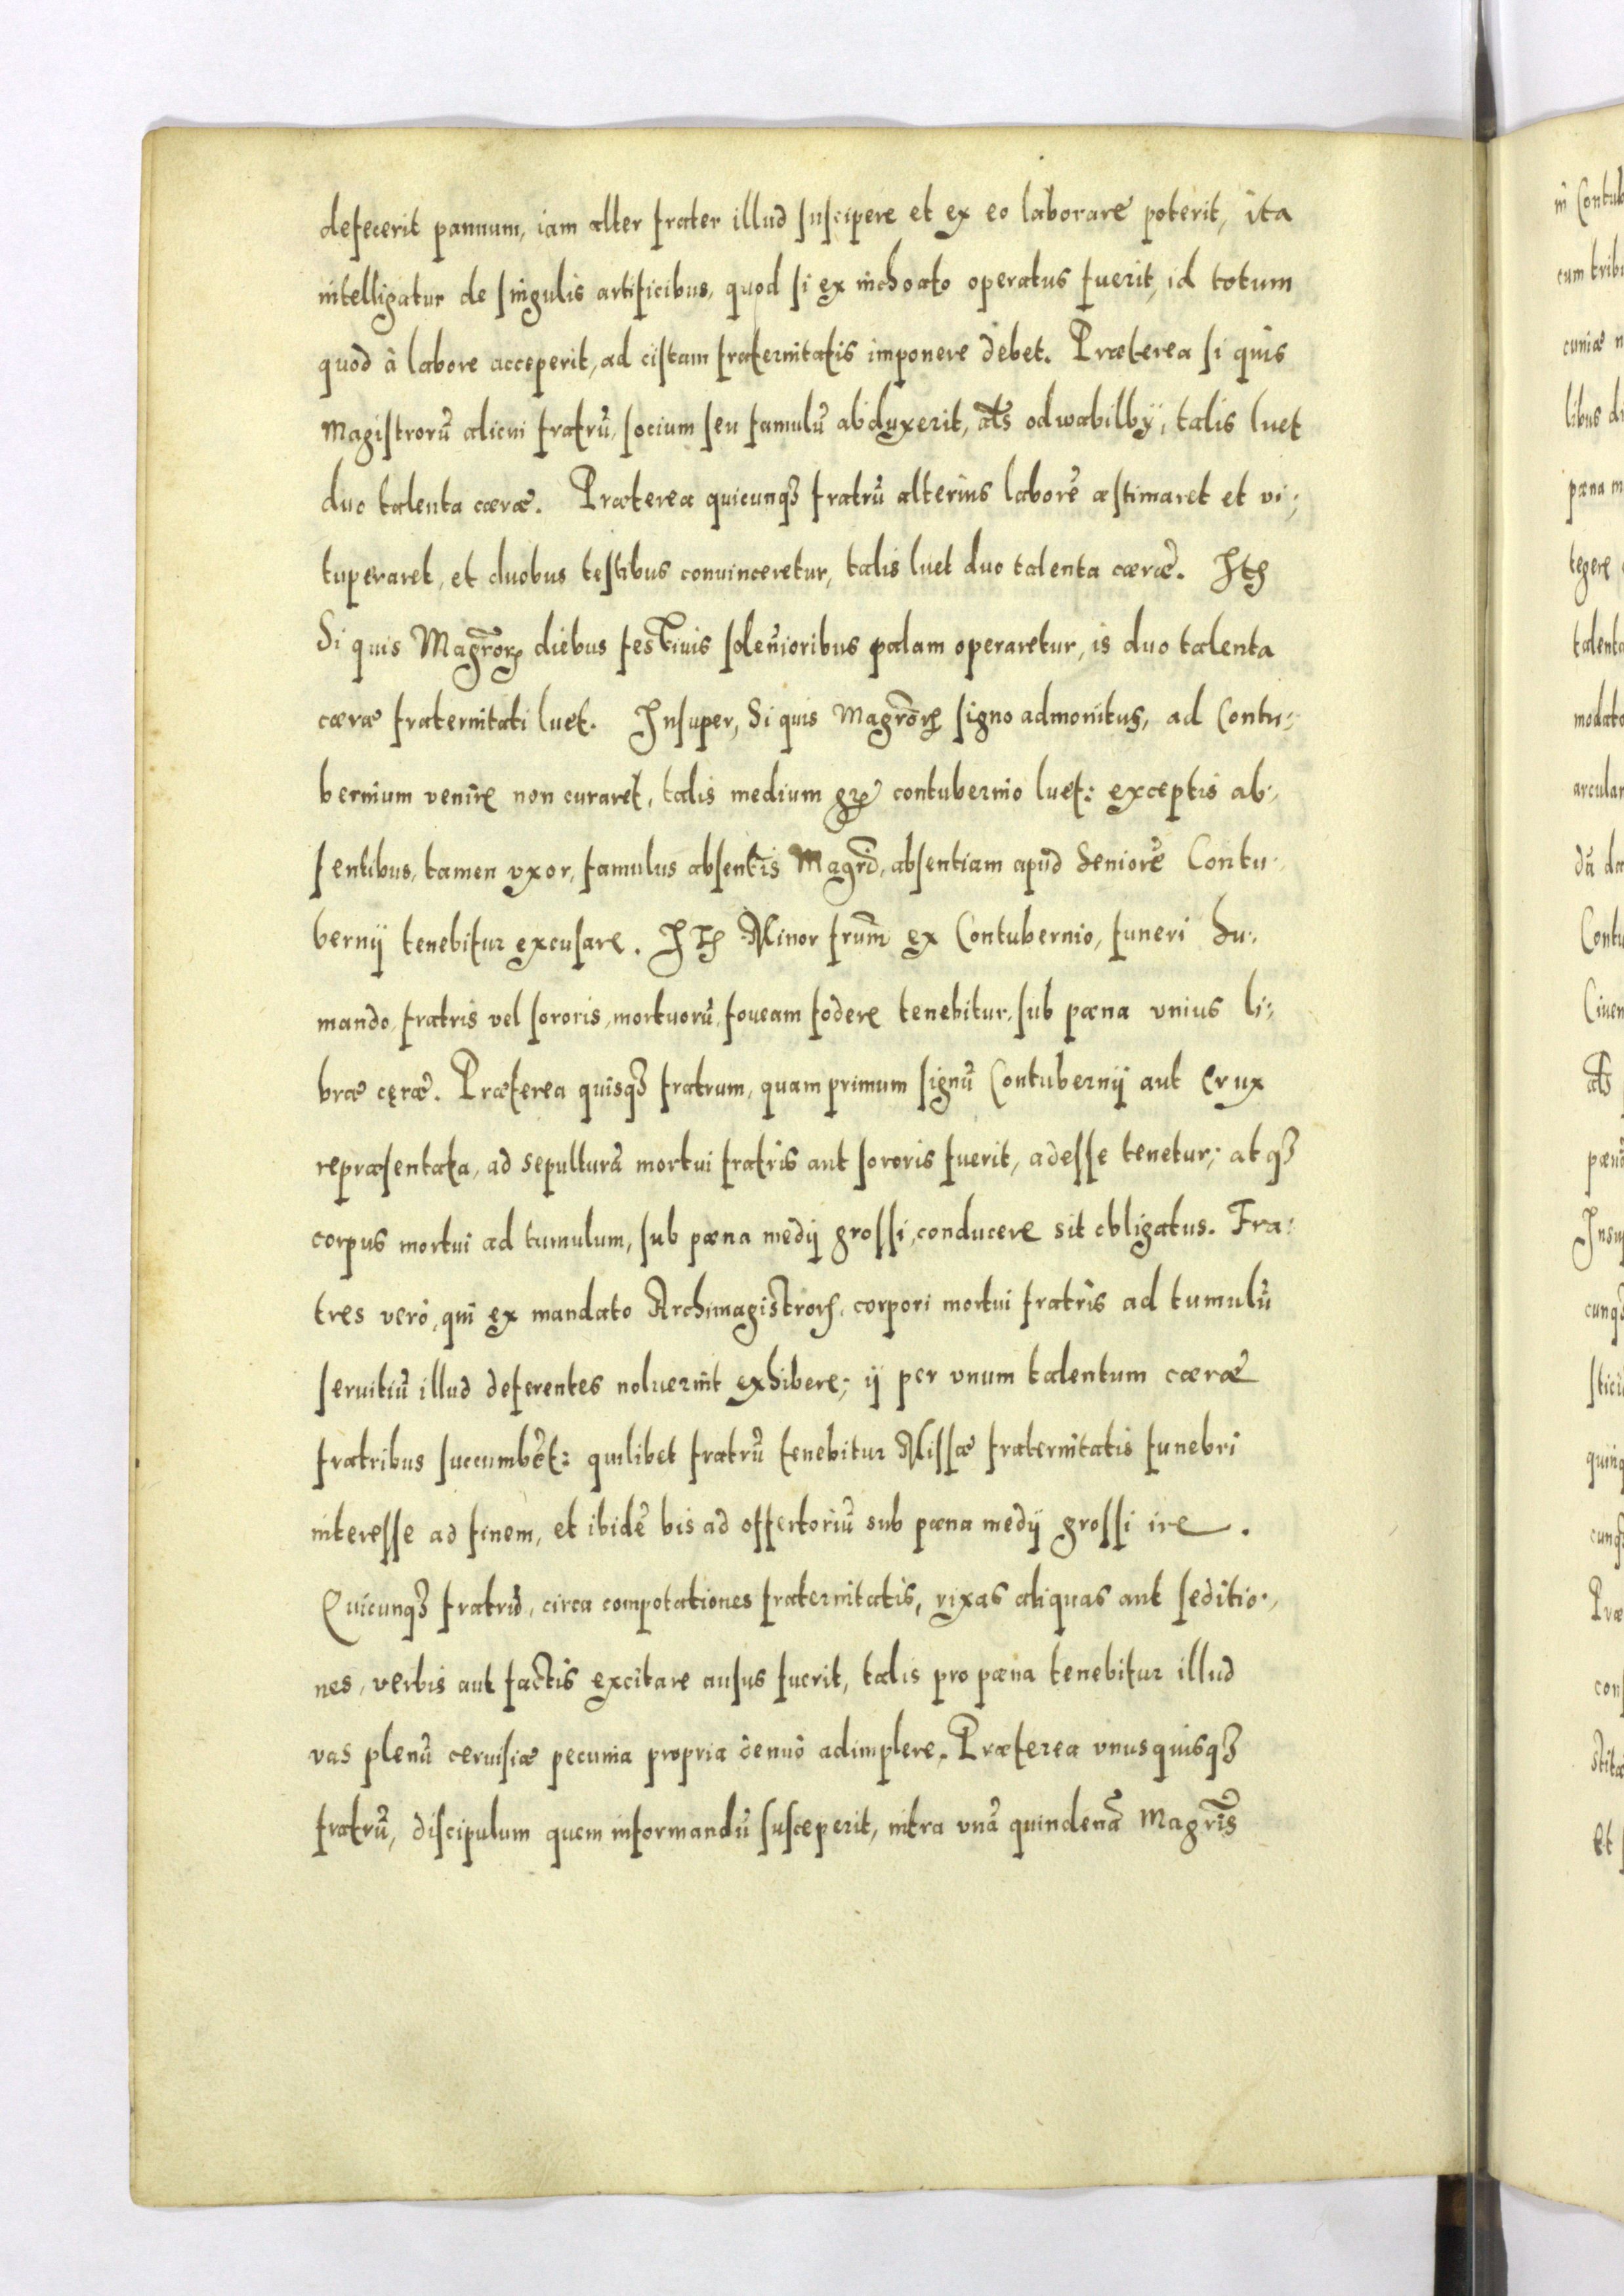 defecerit pannum, iam alter frater illud suscipere et ex eo laborare poterit, ita
intelligatur de singulis artificibus, quod si ex inchoato operatus fuerit, id totum
quod â labore acceperit, ad cistam fraternitatis imponere debet. Præterea si quis
Magistrorũ alicui fratrũ, socium seu famulũ abduxerit, als̃ odwabilby, talis luet
duo talenta cæræ. Præterea quicunqꝫ fratrũ alterius laborẽ æstimaret et vi;
tuperaret, et duobus testibus conuinceretur, talis luet duo talenta cæræ. Itꝫ
Si quis Magrõrꝝ diebus festiuis solẽnioribus palam operaretur, is duo talenta
cæræ fraternitati luet. Insuper, Si quis Magrõrꝝ signo admonitus, ad Contu;
bernium venire non curaret, talis medium gr̃ contubernio luet: exceptis ab;
sentibus, tamen vxor, famulus absentis Magrĩ, absentiam apud Seniorẽ Contu;
bernij tenebitur excusare. Itꝫ Minor frum̃ ex Contubernio, funeri hu;
mando, fratris vel sororis, mortuorũ, foueam fodere tenebitur, sub pæna vnius li;
bræ cęræ. Præterea quisqꝫ fratrum, quam primum signũ Contubernij aut Crux
repræsentata, ad sepulturã mortui fratris aut sororis fuerit, adesse tenetur; atqꝫ
corpus mortui ad tumulum, sub pæna medij grossi, conducere sit obligatus. Fra:
tres verò, qui ex mandato Archimagistrorꝝ, corpori mortui fratris ad tumulũ
seruitiũ illud deferentes noluerint exhibere; ij per vnum talentum cæræ
fratribus succumbẽt: quilibet fratrũ tenebitur Missæ fraternitatis funebri
interesse ad finem, et ibidẽ bis ad offertoriũ sub pæna medij grossi ire.
Quicunqꝫ fratrũ, circa compotationes fraternitatis, rixas aliquas aut seditio;
nes, verbis aut factis excitare ausus fuerit, talis pro pæna tenebitur illud
vas plenũ ceruisiæ pecunia propria denuò adimplere. Præterea vnusquisqꝫ
fratrũ, discipulum quem informandũ susceperit, intra vnã quindenã Magrĩs